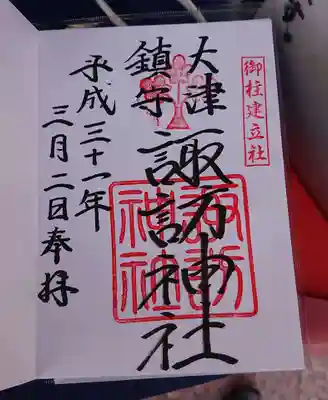 御柱建立社
大津
諏訪神社
鎮守
平成三十一年
三月二日奉拝
諏訪
神社